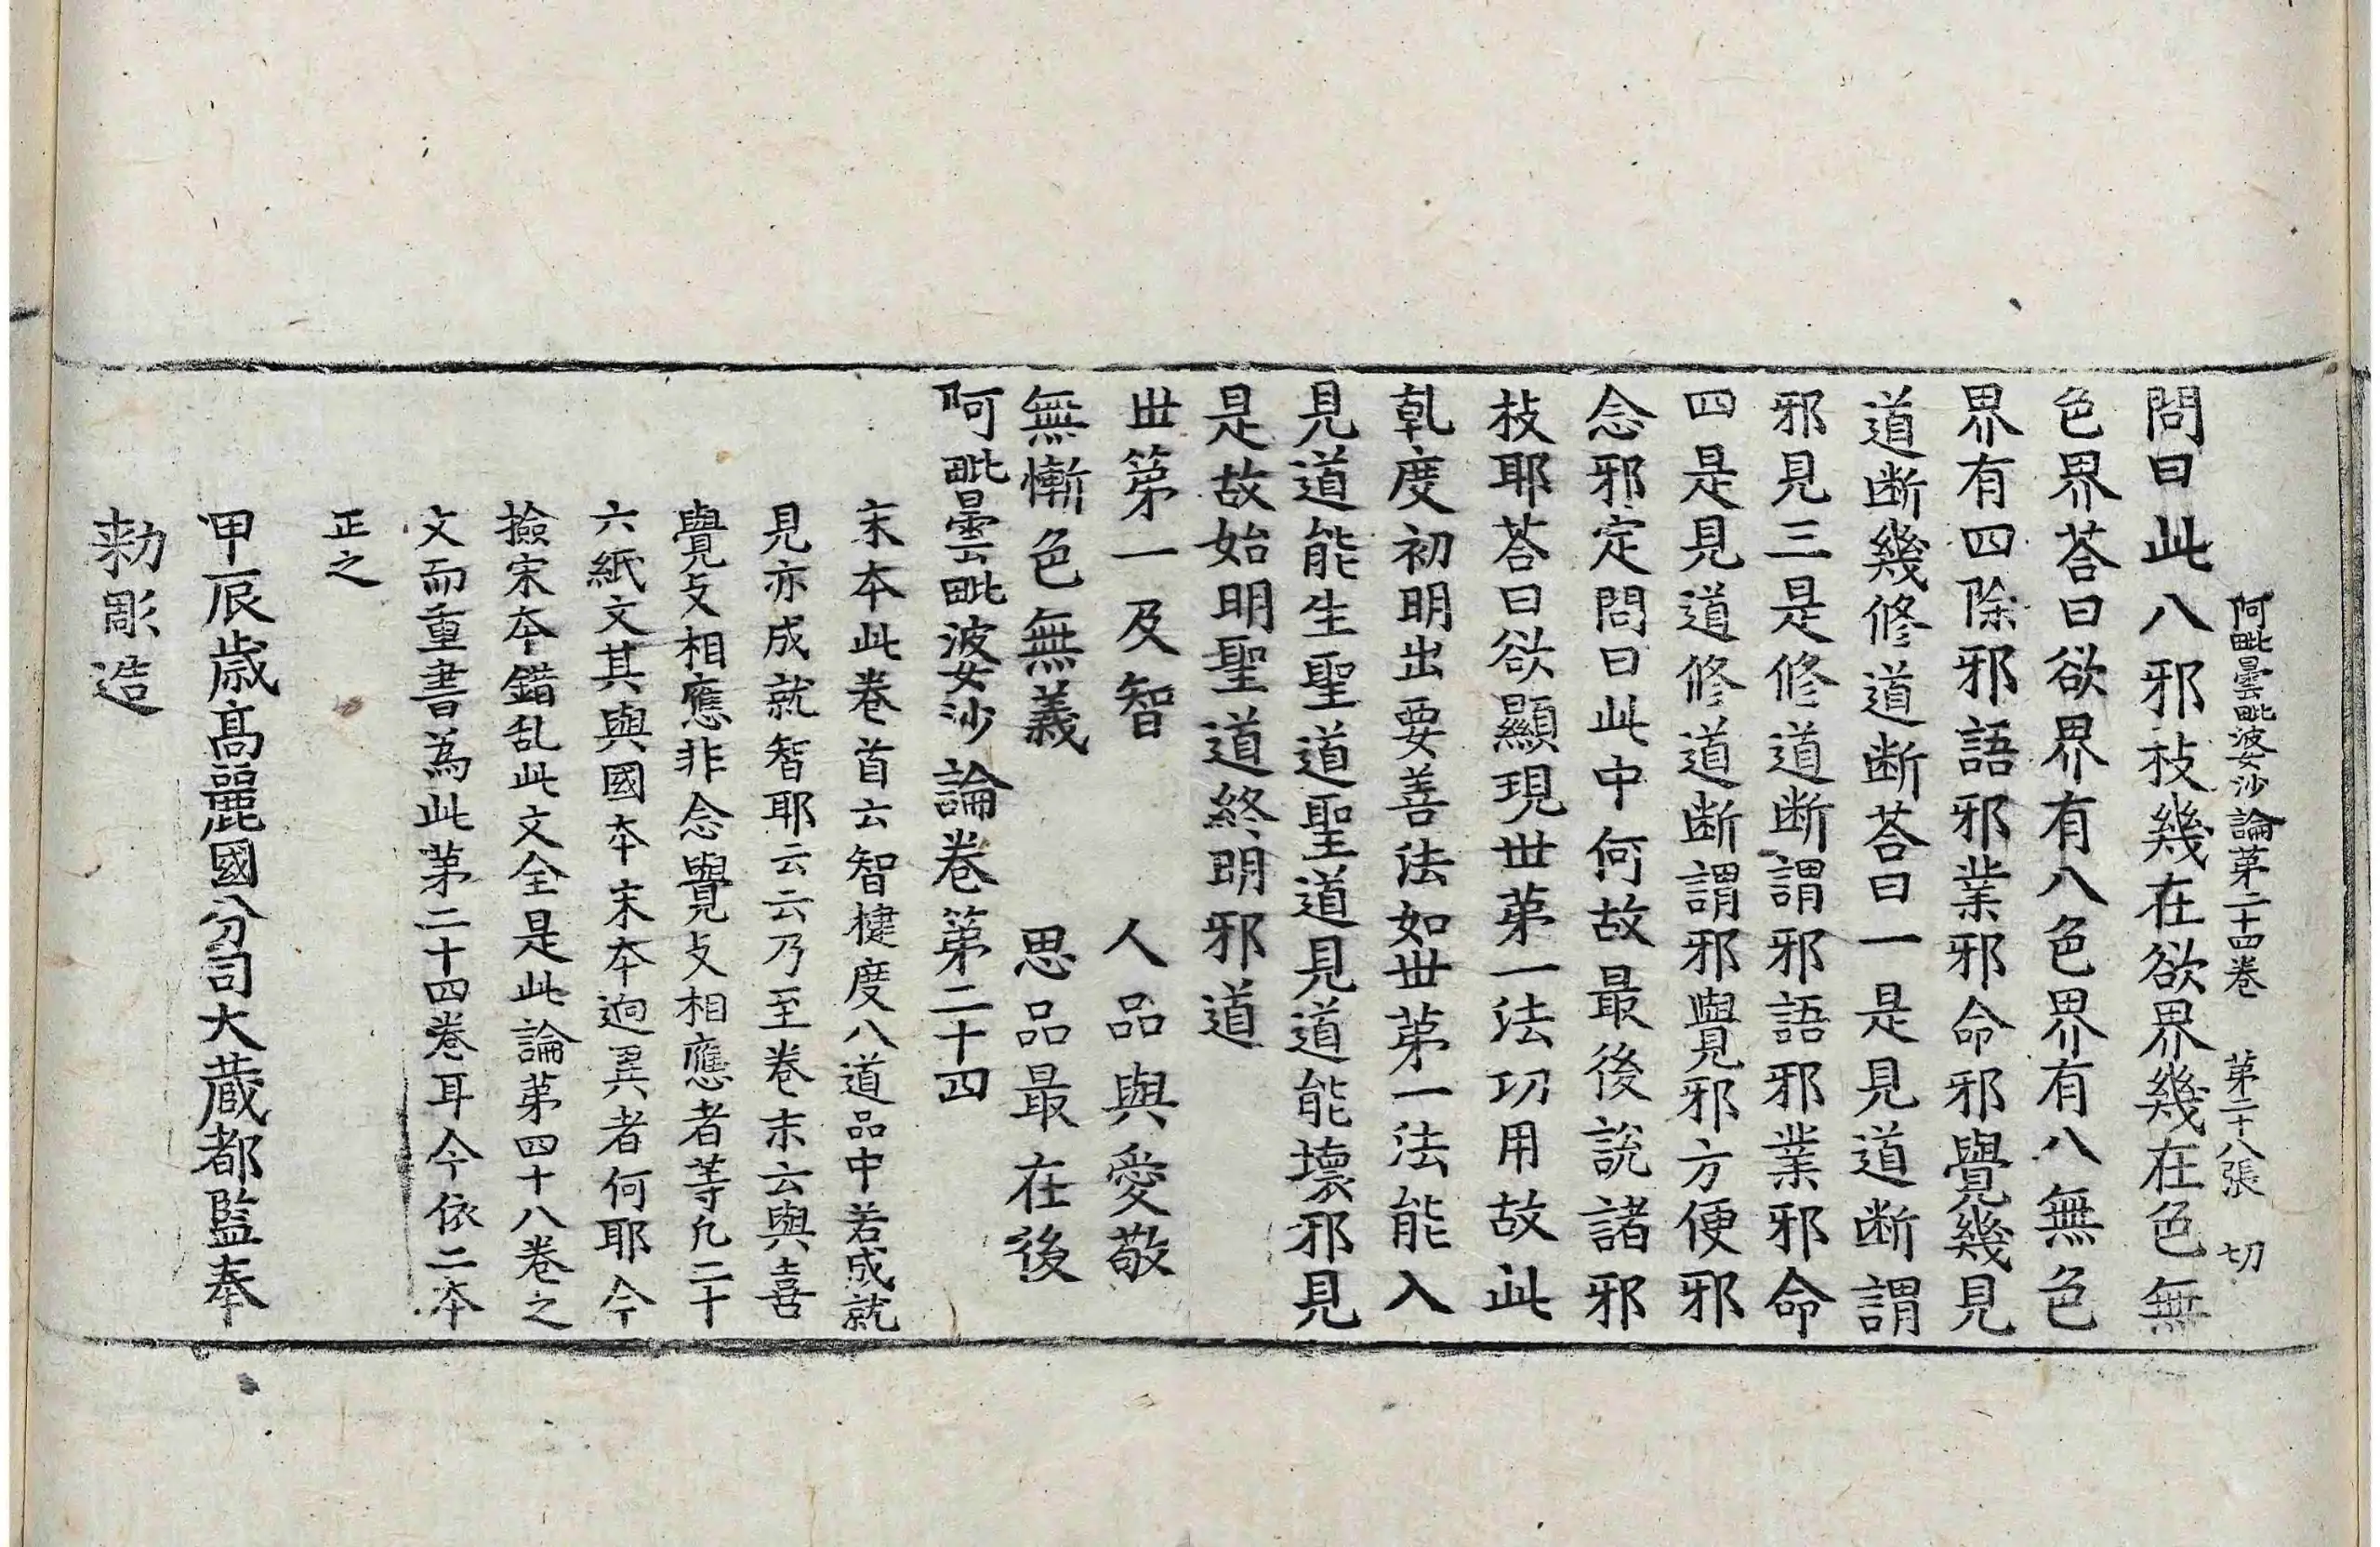 阿毗曇毗婆沙論第二十四卷　第二十八張　切
問曰此八邪枝幾在欲界幾在色無
色界荅曰欲界有八色界有八無色
界有四除邪語邪業邪命邪覺幾見
道斷幾修道斷荅曰一是見道斷謂
邪見三是修道斷謂邪語邪業邪命
四是見道修道斷謂邪覺邪方便邪
念邪定問曰此中何故最後說諸邪
枝耶荅曰欲顯現世第一法功用故此
乹度初明出要善法如世第一法能入
見道能生聖道聖道見道能壞邪見
是故始明聖道終明邪道
世第一及智　人品與愛敬
無慚色無義　思品最在後
阿毗曇毗婆沙論卷第二十四
末本此卷首云智揵度八道品中若成就
見亦成就智耶云云乃至卷末云與喜
覺支相應非念覺支相應者等凡二十
六紙文其與國本宋本逈異者何耶今
撿宋本錯乱此文全是此論第四十八卷之
文而重書為此第二十四卷耳今依二本
正之
甲辰歲高麗國分司大藏都監奉
勑彫造